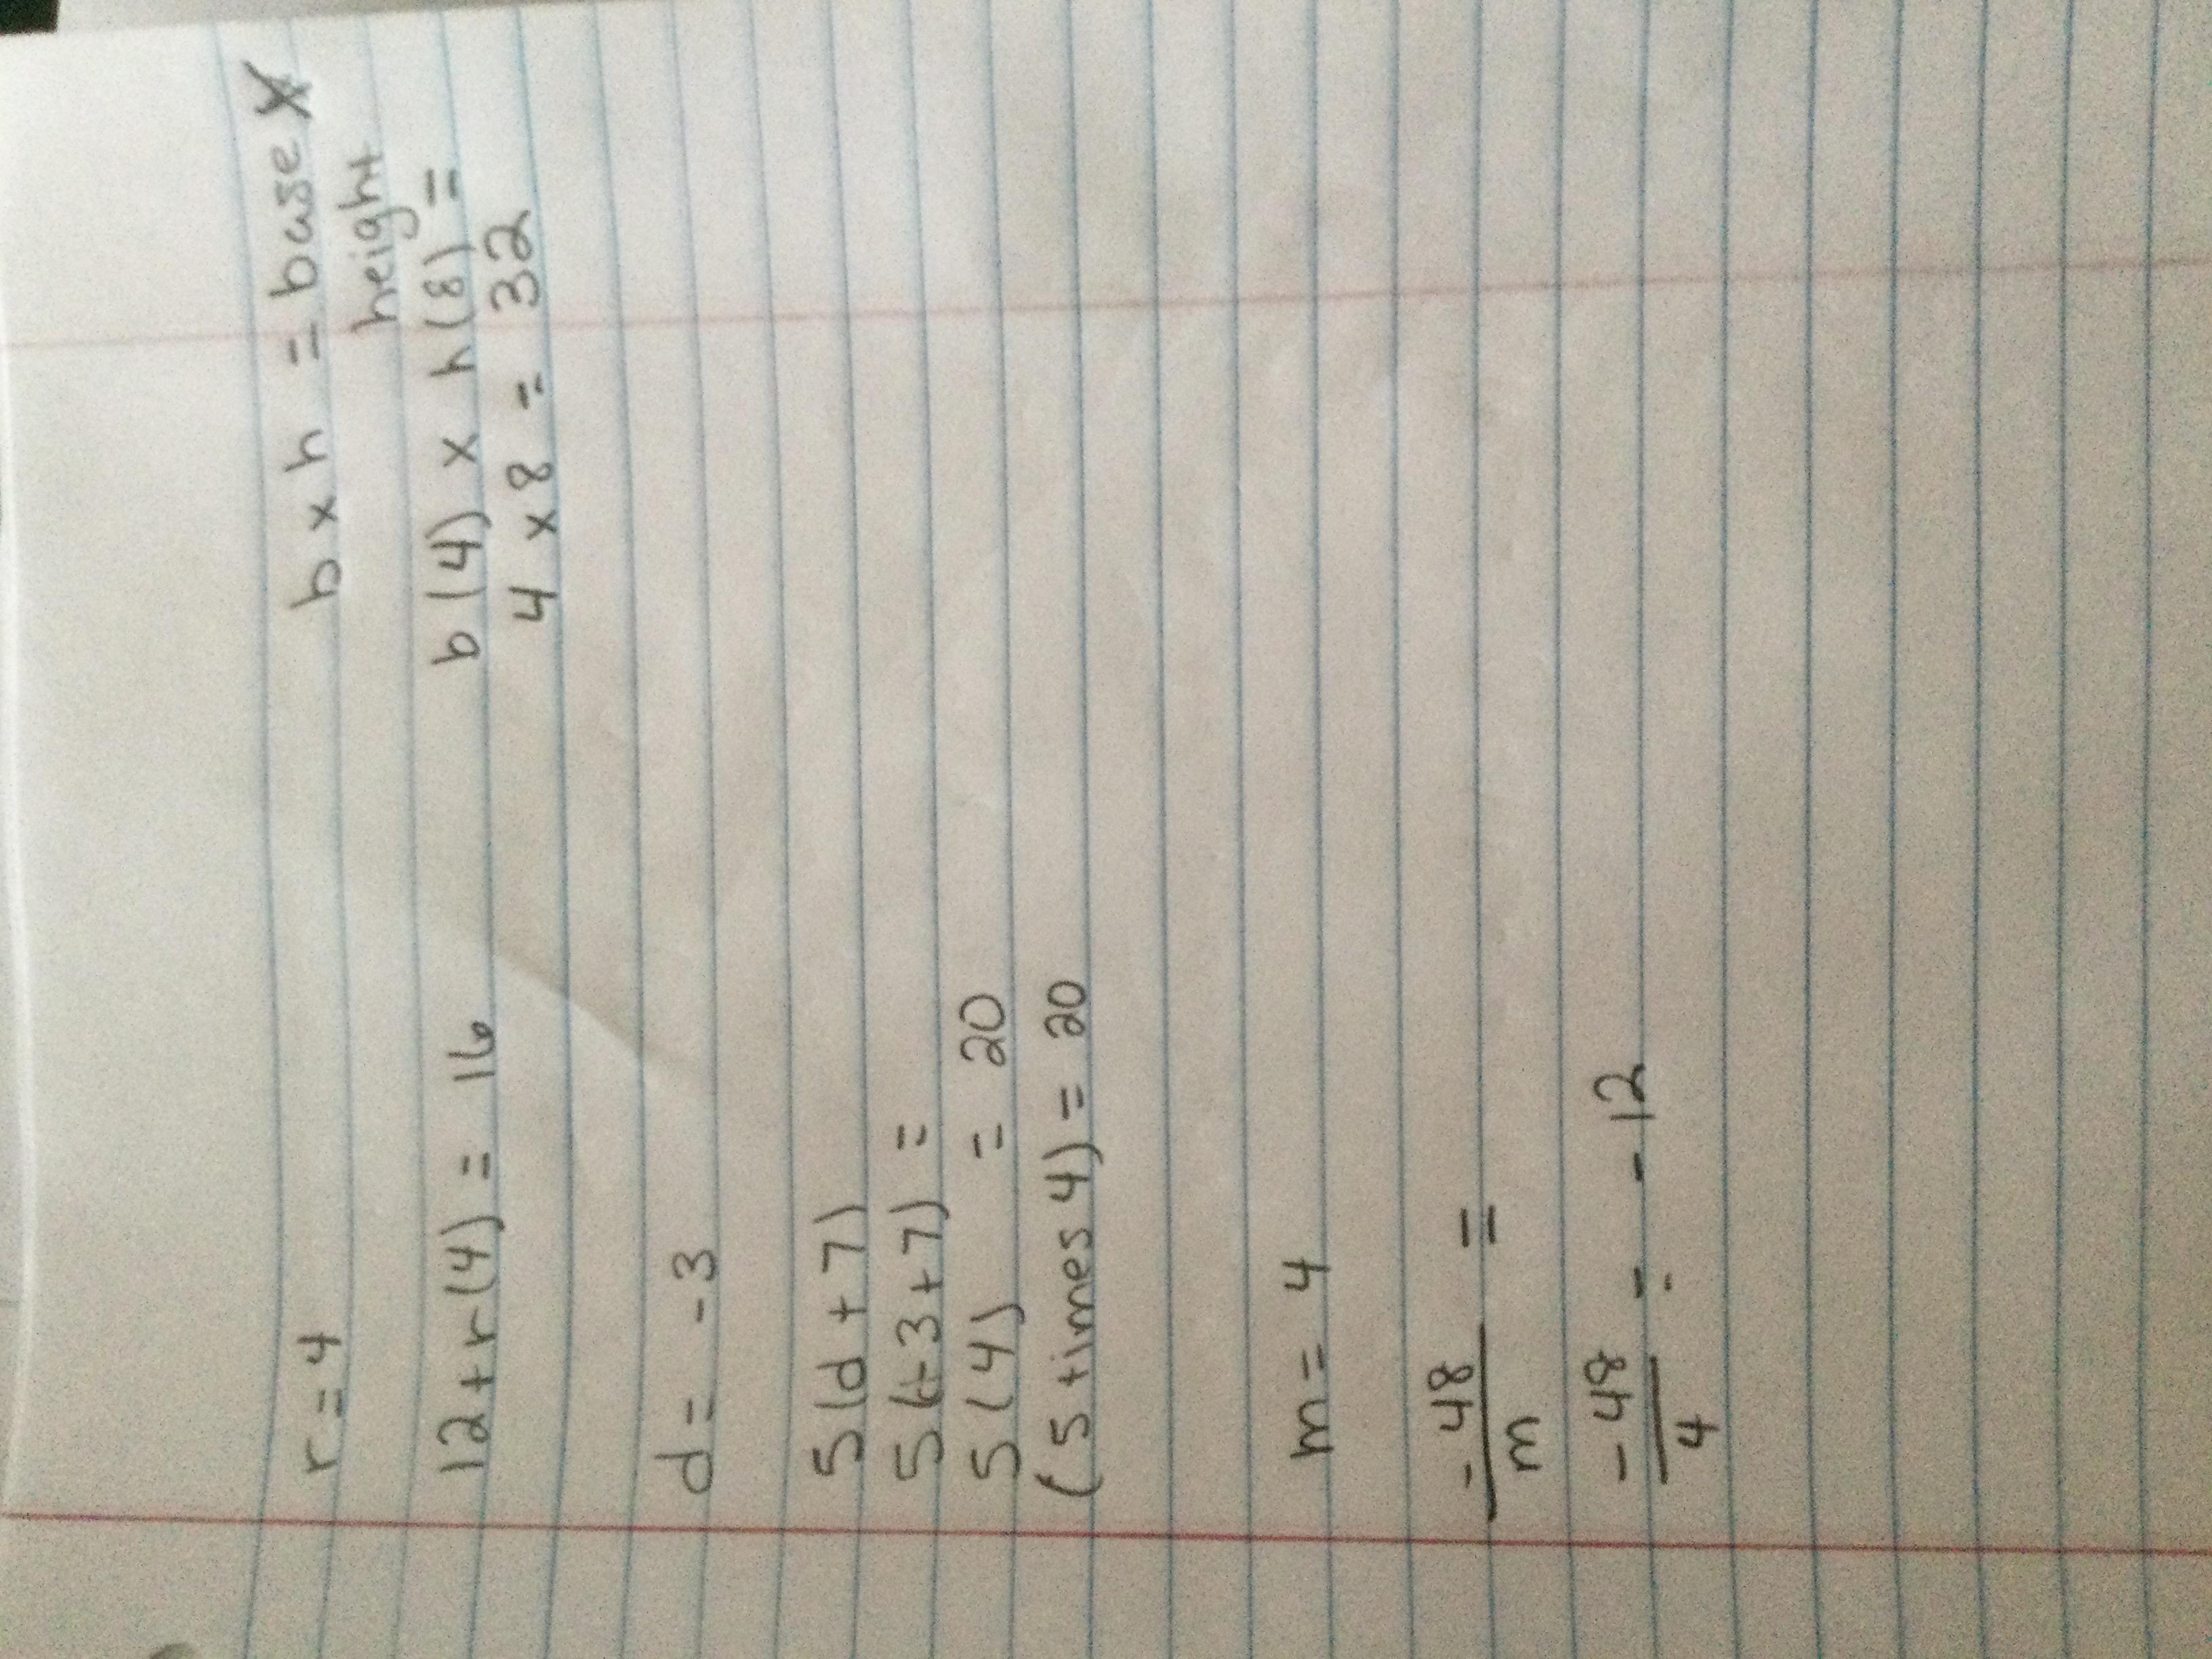 r = 4
12 + r(4) = 16
d = -3
5(d + 7)
5(-3 + 7) =
5(4) = 20
(5 times 4) = 20
m = 4
-48 =
m
-48 = -12
4
b x h = base X
height
b(4) x h(8) =
4 x 8 = 32